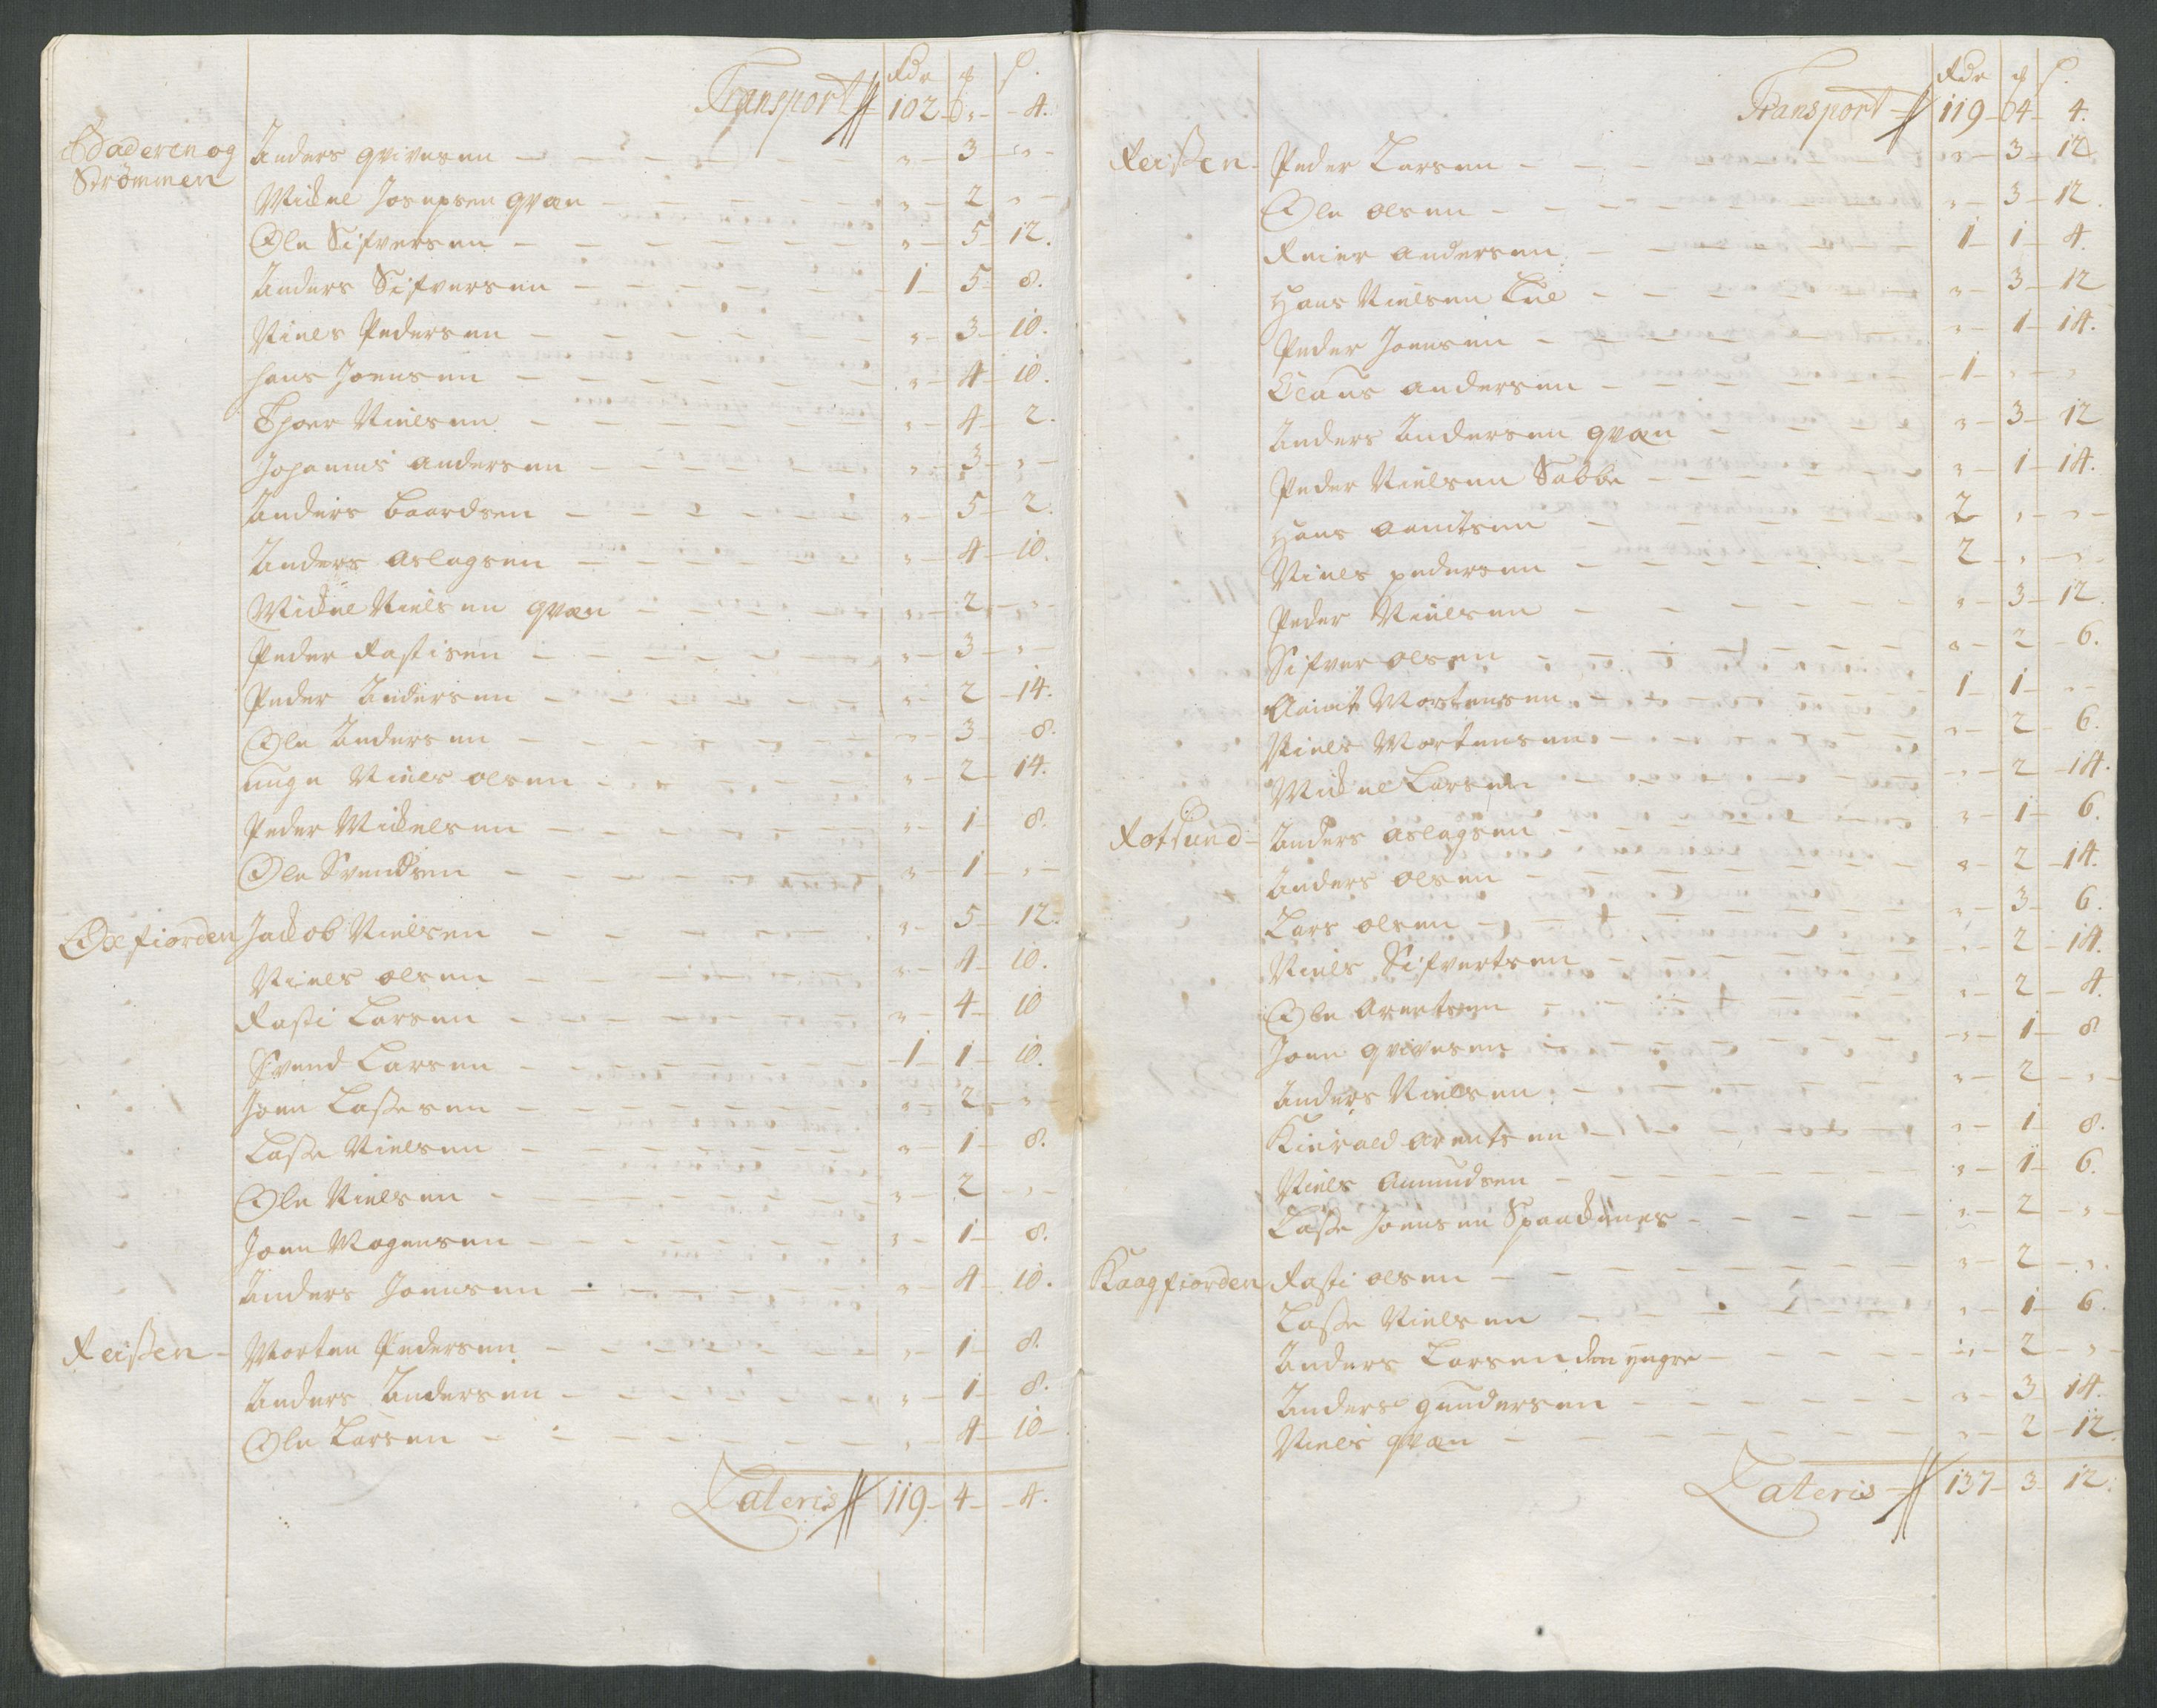 Rdr ꝶ s.
Transport 102 0 „ 4.
Baderen og Anders qvivesen „ 3 „
Strømmen
Mickel Josepsen qvæn „ 2 „
Ole Sifversen „ 5 12.
Anders Sifversen 1 5 8.
Niels Pedersen „ 3 10.
Hans Joensen „ 4 10.
Thoer Nielsen „ 4 2.
Johannis Andersen „ 3 „
Anders Baardsen „ 5 2.
Anders Aslagsen „ 4 10.
Mickel Nielsen qvæn „ 2 „
Peder Rastisen „ 3 „
Peder Andersen „ 2 14.
Ole Andersen „ 3 8.
unge Niels olsen „ 2 14.
Peder Mickelsen „ 1 8.
Ole Svendsen „ 1 „
Oxfiorden Jackob Nielsen „ 5 12.
Niels olsen „ 4 10.
Rasti Larsen „ 4 10
Svend Larsen 1 1 10.
Joen Lassesen „ 2 „
Lasse Nielsen „ 1 8.
Ole Nielsen „ 2 „
Joen Mogensen „ 1 8.
Anders Joensen „ 4 10.
Reissen Morten Pedersen „ 1 8.
Anders Andersen „ 1 8.
Ole Larsen „ 4 10
Lateris 119 4 4.
Rdr ꝶ s.
Transport 119 4 4.
Reissen Peder Larsen „ 3 12
Ole olsen „ 3 12.
Reier Andersen 1 1 4.
Hans Nielsen Lul „ 3 12
Peder Joensen „ 1 14.
Claus Andersen 1 „ „
Anders Andersen qvæn „ 3 12
Peder Nielsen Sabbe „ 1 14.
Hans Amitsen 2 „ „
Niels pedersen 2 „ „
Peder Nielsen „ 3 12.
Sifver olsen „ 2 6.
Amit Mortensen 1 1 „
Niels Mortensen „ 2 6.
Mickel Larsen „ 2 14.
Rotsund Anders Aslagsen „ 1 6.
Anders olsen „ 2 14.
Lars olsen „ 3 6.
Niels Sifvertsen „ 2 14.
Ole Arentsen „ 2 4.
Joen qvivesen „ 1 8
Anders Nielsen „ 2 „
Kinrald Arentsen „ 1 8.
Niels Amundsen „ 1 6.
Lasse Joensen Spaackenes „ 2 „
Kaagfiorden Rasti olsen „ 2 „
Lasse Nielsen „ 1 6.
Anders Larsen den yngre „ 2 „
Anders gundersen „ 3 14.
Niels qvæn „ 2 12.
Lateris 137 3 12.